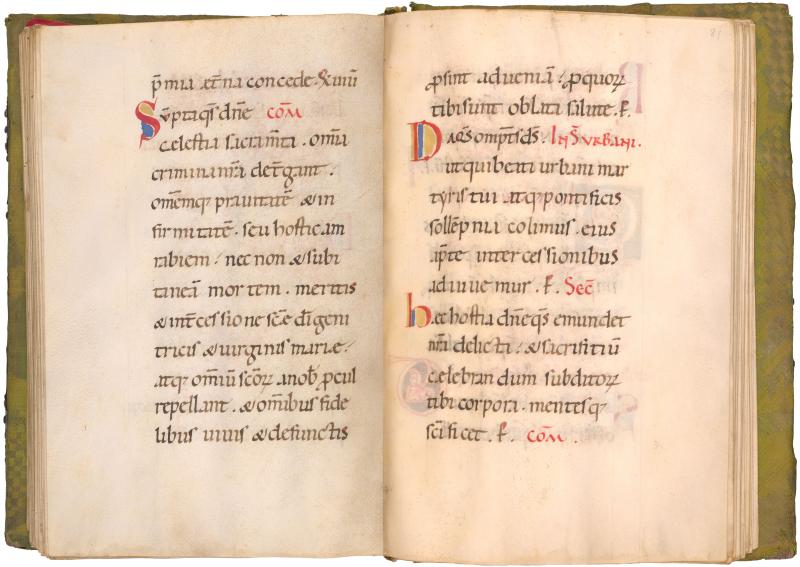 p̄mia et̄na concede. & inuī
Sūpta q̄s dn̄e cōm
celestia sacram̄ta. om̄ia
crimina nr̄a det̄gant.
om̄emq; prauitatē & in
firmitatē. seu hosticam
rabiem. nec non & subi
taneā mortem. meritis
& int̄cessione sc̄e dī geni
tricis & uirginis marie.
atq; om̄iū scōꝝ a nob̄ ꝓcul
repellant. & om̄ibus fide
libus uiuis & defunctis
81
ꝓsint ad ueniā. ꝓ quoꝝ
tibi sunt oblata salute. ꝑ.
Da q̄s omp̄s d̄s. IN S̄ URBANI.
ut qui beati urbani mar
tyris tui atq; pontificis
sollēpnia colimus. eius
ap̄te intercessionibus
adiuuemur. ꝑ. Sec̄
hec hostia dn̄e q̄s emundet
nr̄a delicta. & sacrifitiū
celebrandum subditoꝝ
tibi corpora. mentesq;
sc̄ificet. ꝑ. cōm.